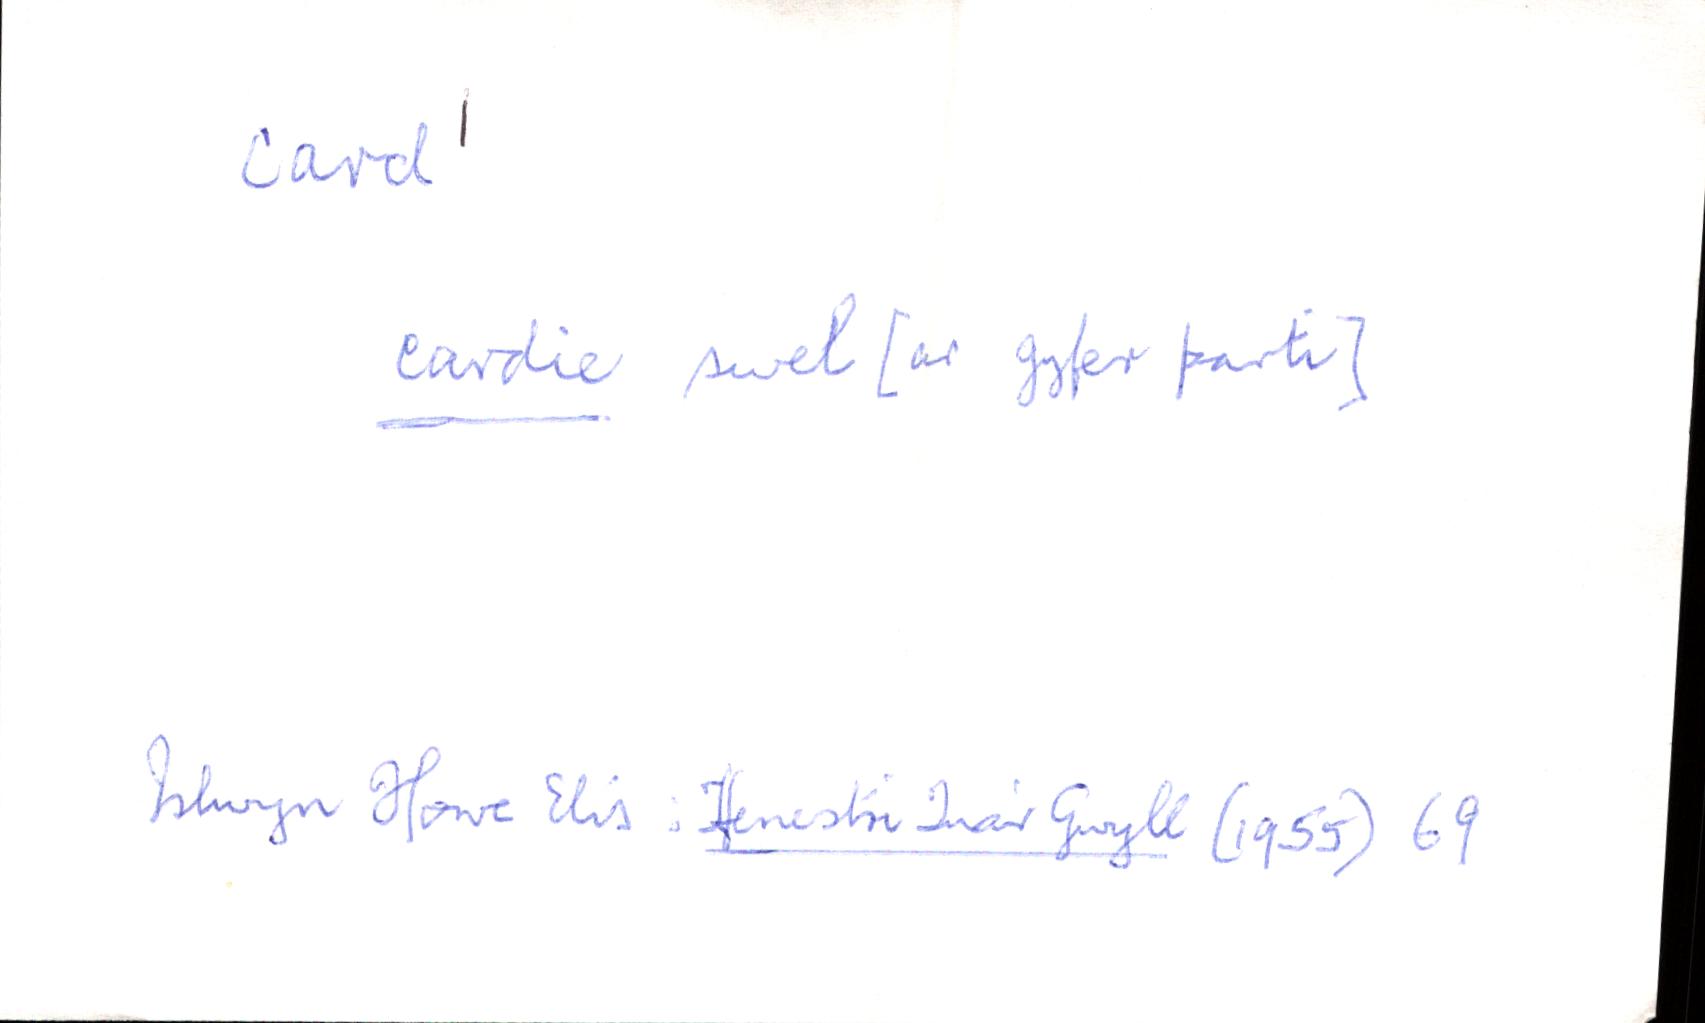 card¹
cardie swel [ar gyfer parti]
Islwyn Ffowc Elis : Ffenestri Tua'r Gwyll (1955) 69